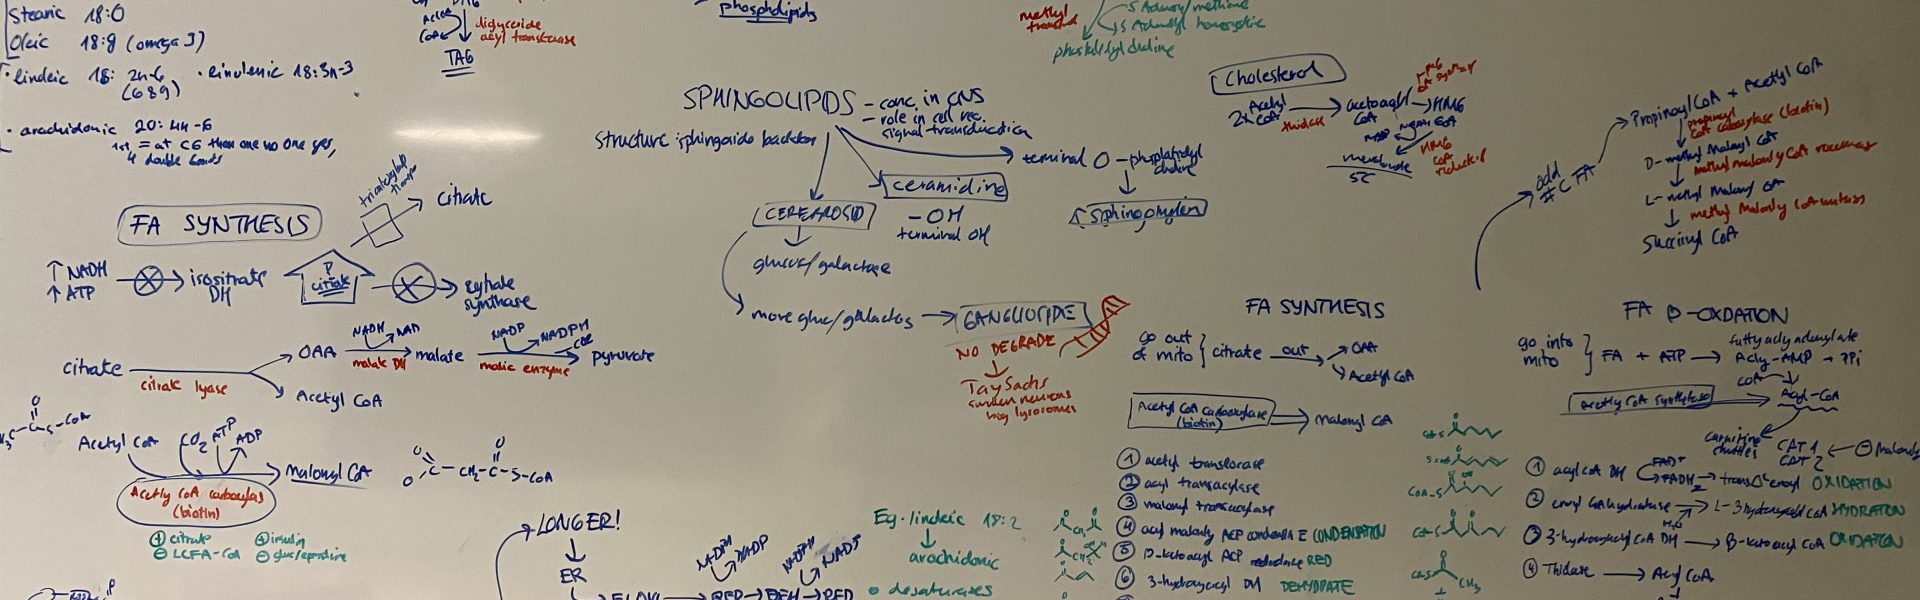 Stearic 18:0
Oleic 18:9 (omega 3)
• linoleic 18: 2n-6
(6 & 9)
• linolenic 18:3n-3
• arachidonic 20:4n-6
1st = at C6 then one no one yes,
4 double bonds
CoA
diglyceride
acyl transferase
TAG
phospholipids
methyl
transf
S Adenosyl methione
S Adenosyl homocystie
phosphatidyl choline
SPHINGOLIPIDS
- conc. in CNS
- role in cell rec.
signal transduction
structure: sphingoide backbone
terminal O - phosphatidyl
choline
Sphingomyelin
ceramidine
- OH
terminal OH
CEREBROSID
glucose/galactose
more gluc/galactos → GANGLIOTIDE
NO DEGRADE
Tay Sachs
swollen neurons
big lysosomes
Cholesterol
2x Acetyl
CoA
thiolase
acetoacyl
CoA
HMG
CoA
HMG
CoA
reductase
5C
add
# C FA
Propinoyl CoA + Acetyl CoA
propionyl
CoA carboxylase (biotin)
D-methyl Malonyl CoA
methyl malonly CoA racemase
L-methyl Malonyl CoA
methyl Malonly CoA mutass
Succinyl CoA
FA SYNTHESIS
↑ NADH
↑ ATP
isositrate
DH
citrate
tricarboxylat
transp
citrate
synthase
citrate
citrate lyase
OAA
Acetyl CoA
NADH
NAD
malate DH
malate
NADP
NADPH
CO2
malic enzyme
pyruvate
Acetyl CoA
CO2
ATP
ADP
Malonyl CoA
Acetly CoA carboxylas
(biotin)
+ citrate
+ insulin
- LCFA-CoA
O
C - CH2 - C - S - CoA
LONGER!
ER
NADPH
NADP
RED → DEH → RED
Eg. linoleic 18:2
arachidonic
desaturases
FA SYNTHESIS
go out
of mito
citrate
out
OAA
Acetyl CoA
Acetyl CoA carboxylase
(biotin)
Malonyl CA
① acetyl translocase
② acyl transacylase
③ malonyl transacylase
④ acyl malonly ACP condensing E CONDENSATION
⑤ B-ketoacyl ACP reductase RED
⑥ 3-hydroxyacyl DH DEHYDRATE
FA β-OXDATION
go into
mito
FA + ATP → Acly-AMP + PPi
fatty acly adenylate
CoA
Acetly CoA synthetase
Acyl-CoA
carnitine
shuttles
CAT 1
CAT 2
⊖ malonyl
① acyl CoA DH
FAD+
FADH2
trans Δ2 enoyl OXIDATION
② enoyl CoA hydratase
H2O
L-3 hydroxyacyl CoA HYDRATION
③ 3-hydroxyacyl CoA DH → β-ketoacyl CoA OXIDATION
④ Thiolase → Acyl CoA